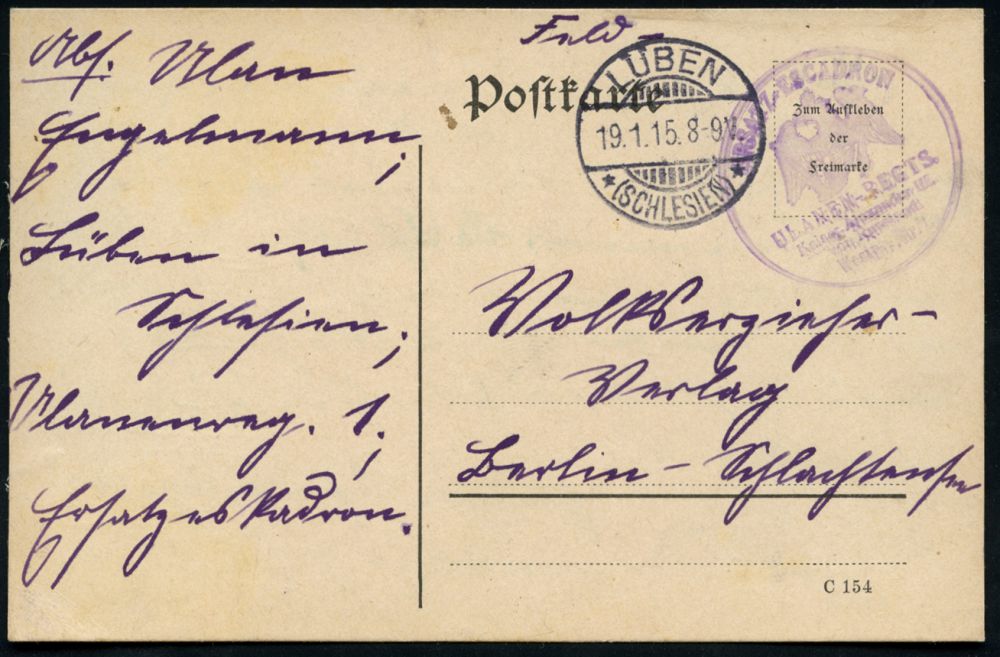 Feld-
Postkarte
LÜBEN
19.1.15.8-9V.
* (SCHLESIEN) *
Zum Aufkleben
der
Freimarke
ERSATZ-ESCADRON
ULANEN-REGTS.
Kaiser Alexander III.
Abs. Ulan
Engelmann,
Lüben in
Schlesien,
Ulanenreg. 1,
Ersatzeskadron.
Volkserzieher-
Verlag
Berlin - Schlachtensee
C 154